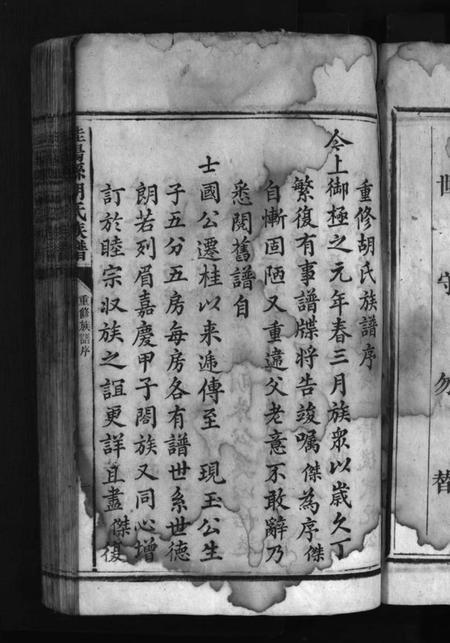 世守勿替
重修胡氏族譜序
今上御極之元年春三月族衆以歲久丁
繁復有事譜牒將告竣嘱傑為序傑
自慚固陋又重違父老意不敢辭乃
悉閱舊譜自
士國公遷桂以来遞傳至 現玉公生
子五分五房每房各有譜世系世德
朗若列眉嘉慶甲子閤族又同心增
訂於睦宗收族之誼更詳且盡傑復
桂陽縣胡氏族譜
重修族譜序